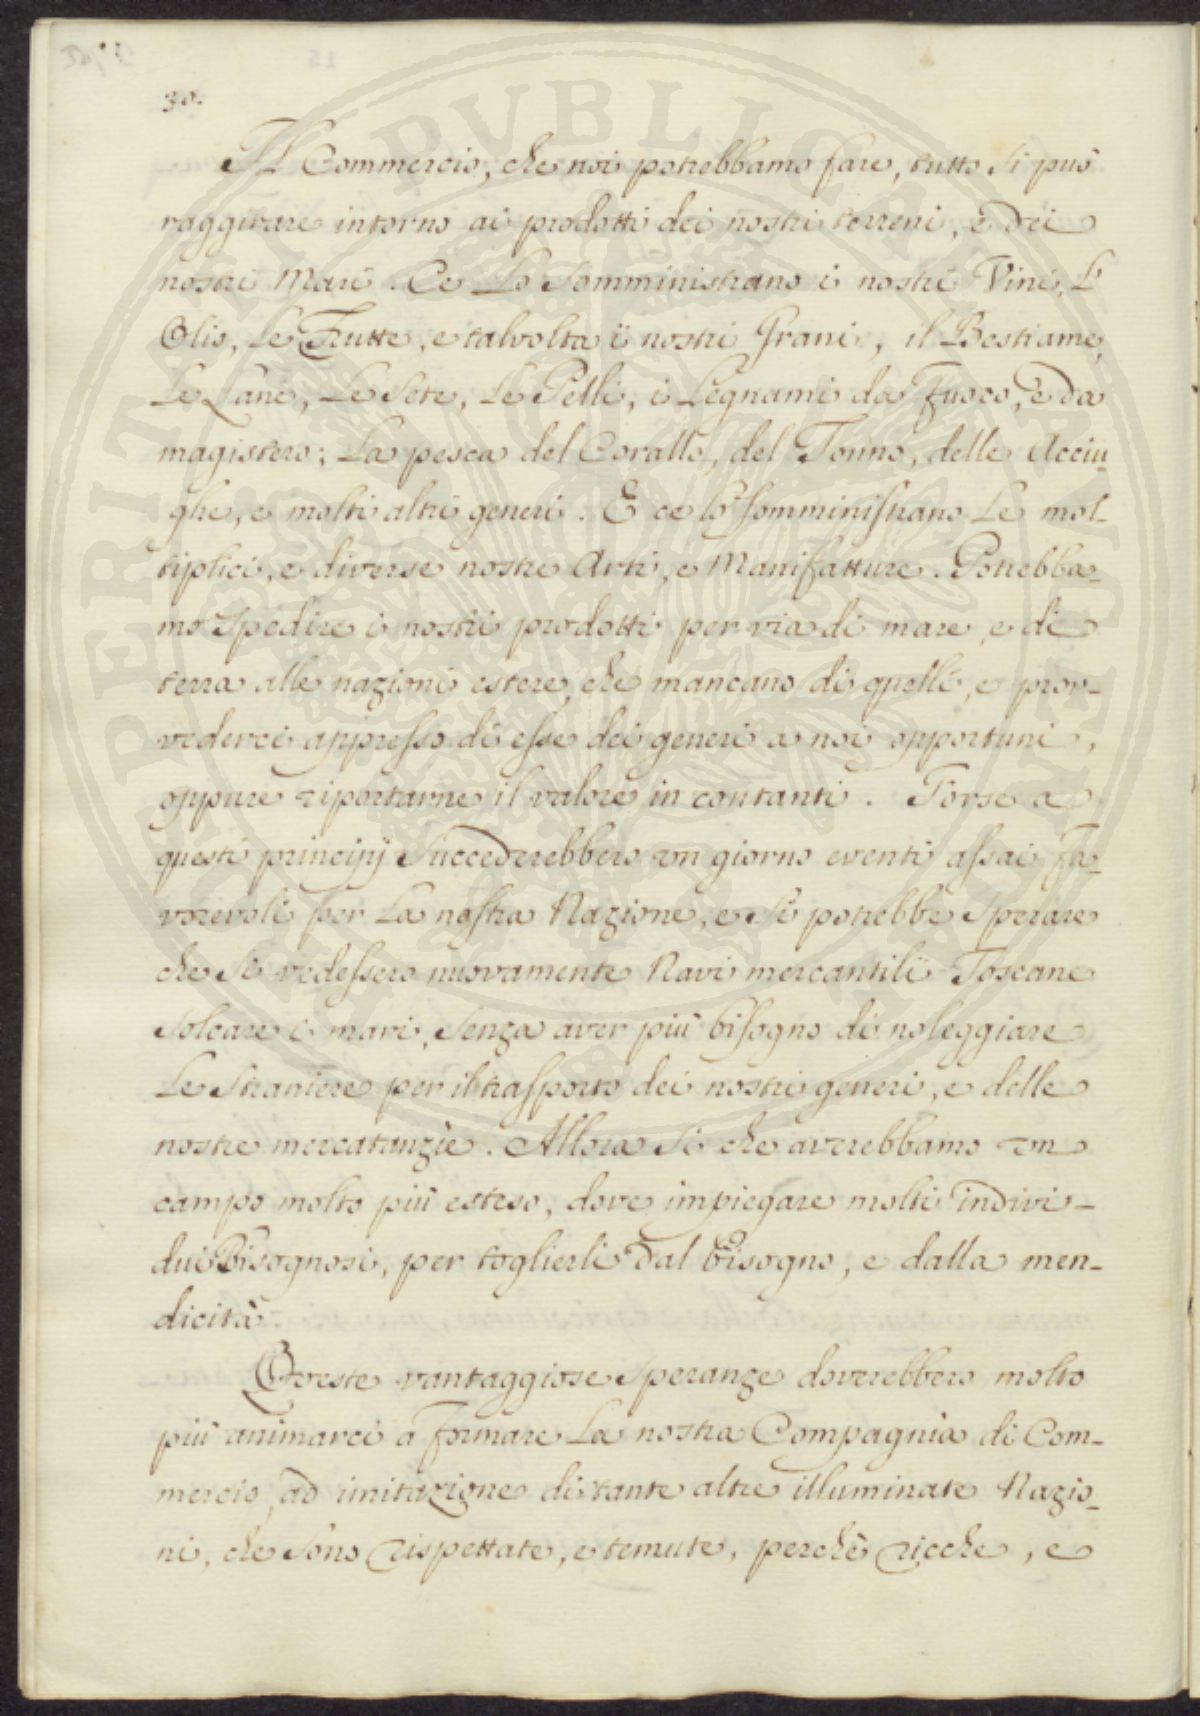 30.
Il Commercio, che noi potrebbamo fare, tutto si può
raggirare intorno ai prodotti dei nostri terreni, e dei
nostri Mari. Ce lo somministrano i nostri Vini, l'
Olio, le Frutte, e talvolta i nostri Grani, il Bestiame,
le Lane, le Sete, le Pelli, i Legnami da Fuoco, e da
magistero; La pesca del Corallo, del Tonno, delle Acciu-
ghe, e molti altri generi. E ce lo somministrano le mol-
tiplici, e diverse nostre Arti, e Manifatture. Potrebba-
mo spedire i nostri prodotti per via di mare, e di
terra alle nazioni estere, che mancano di quelli, e prov-
vederci appresso di esse dei generi a noi opportuni,
oppure riportarne il valore in contanti. Forse a
questi principij succederebbero un giorno eventi assai fa-
vorevoli per la nostra Nazione, e si potrebbe sperare
che si vedessero nuovamente Navi mercantili Toscane
solcare i mari, senza aver più bisogno di noleggiare
le straniere per il trasporto dei nostri generi, e delle
nostre mercatanzie. Allora sì che averebbamo un
campo molto più esteso, dove impiegare molti indivi-
dui Bisognosi, per toglierli dal bisogno, e dalla men-
dicità.
Queste vantaggiose speranze doverebbero molto
più animarci a formare la nostra Compagnia di Com-
mercio, ad imitazione di tante altre illuminate Nazio-
ni, che sono rispettate, e temute, perchè ricche, e